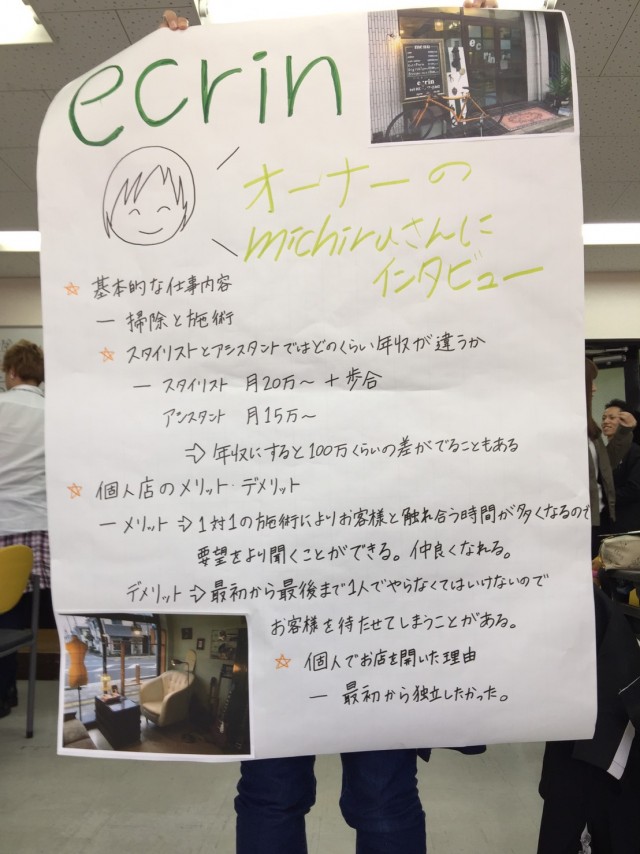 ecrin
オーナーの
michiruさんに
インタビュー
☆ 基本的な仕事内容
― 掃除と施術
☆ スタイリストとアシスタントではどのくらい年収が違うか
― スタイリスト 月20万〜 + 歩合
アシスタント 月15万〜
⇨ 年収にすると100万くらいの差がでることもある
☆ 個人店のメリット・デメリット
― メリット ⇨ 1対1の施術によりお客様と触れ合う時間が多くなるので
要望をより聞くことができる。仲良くなれる。
デメリット ⇨ 最初から最後まで1人でやらなくてはいけないので
お客様を待たせてしまうことがある。
☆ 個人でお店を開いた理由
― 最初から独立したかった。